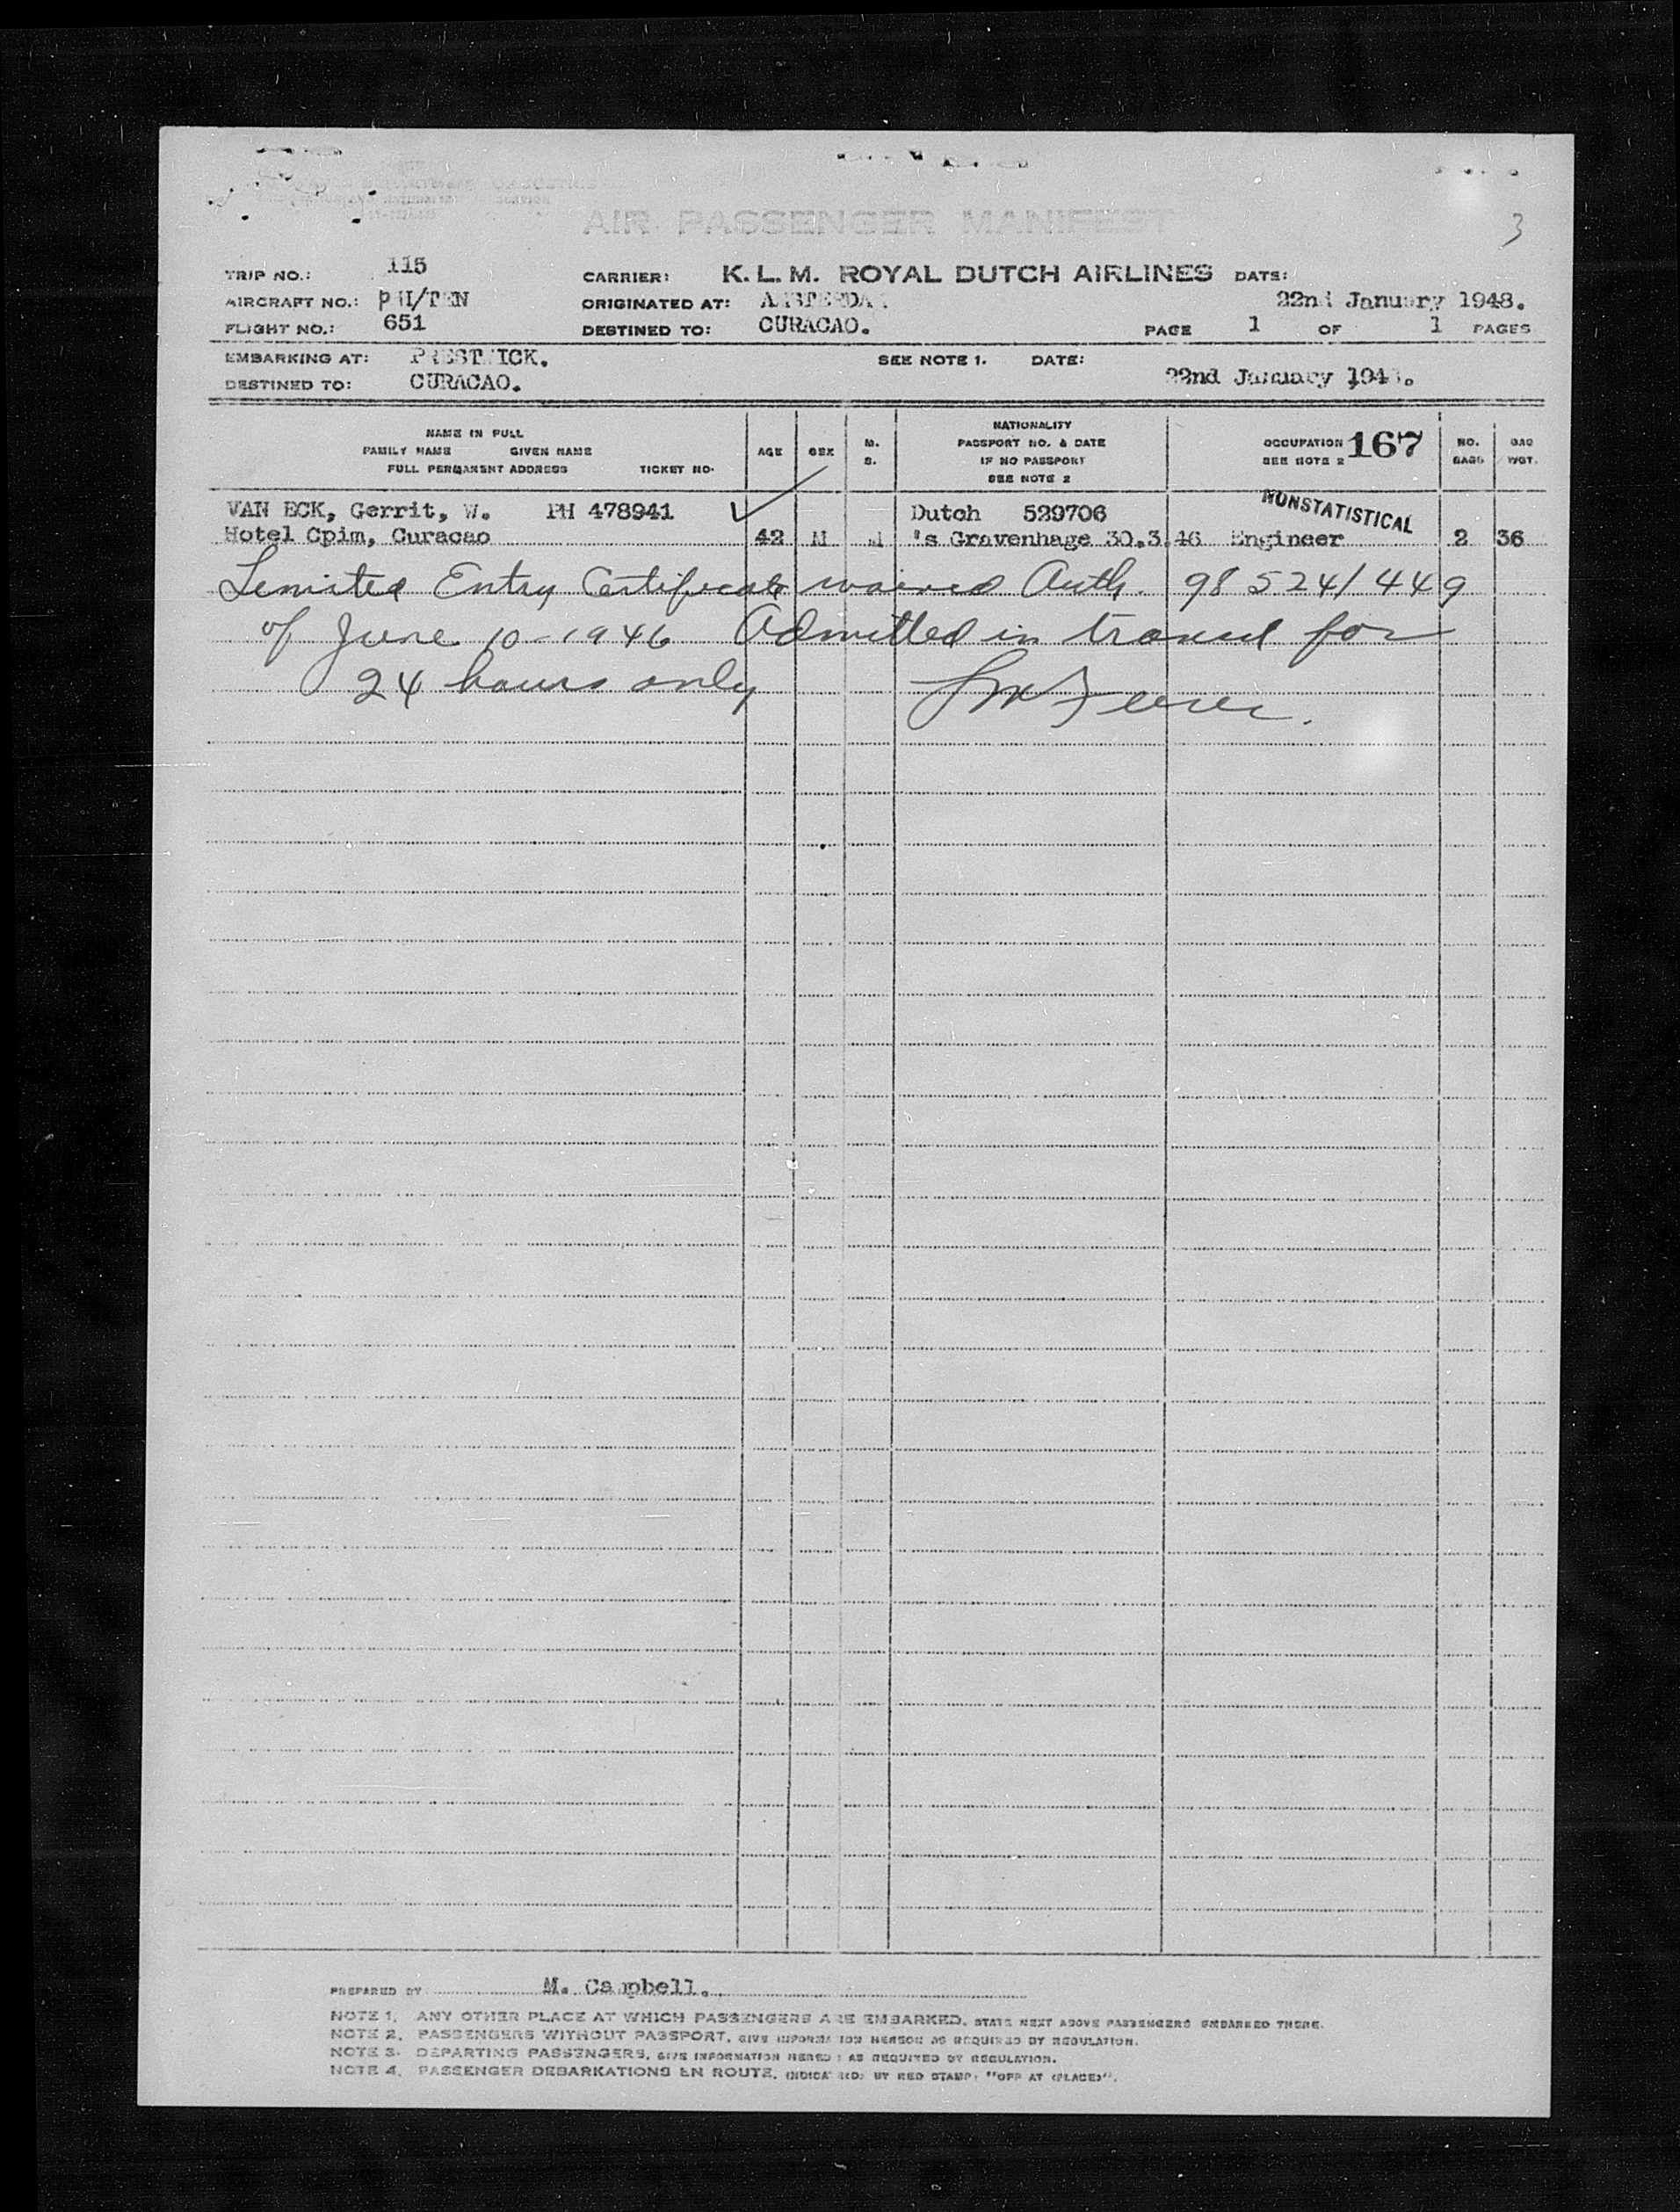 AIR PASSENGER MANIFEST
3
TRIP NO.: 115 CARRIER: K.L.M. ROYAL DUTCH AIRLINES DATE:
AIRCRAFT NO.: PH/TEN ORIGINATED AT: AMSTERDAM. 22nd January 1948.
FLIGHT NO.: 651 DESTINED TO: CURACAO. PAGE 1 OF 1 PAGES
EMBARKING AT: PRESTWICK. SEE NOTE 1. DATE:
DESTINED TO: CURACAO. 22nd January 1948.
NAME IN FULL
FAMILY NAME GIVEN NAME
FULL PERMANENT ADDRESS TICKET NO.
AGE SEX M. S.
NATIONALITY
PASSPORT NO. & DATE
IF NO PASSPORT
SEE NOTE 2
OCCUPATION 167
SEE NOTE 2
NO. BAGS
BAG WGT.
VAN ECK, Gerrit, W. PH 478941 Dutch 529706 NONSTATISTICAL
Hotel Cpim, Curacao 42 M M 's Gravenhage 30.3.46 Engineer 2 36
Limited Entry Certificate waived Auth. 98524/449
of June 10-1946 Admitted in transit for
24 hours only
PREPARED BY M. Campbell.
NOTE 1. ANY OTHER PLACE AT WHICH PASSENGERS ARE EMBARKED, STATE NEXT ABOVE PASSENGERS EMBARKED THERE.
NOTE 2. PASSENGERS WITHOUT PASSPORT, GIVE INFORMATION HEREON AS REQUIRED BY REGULATION.
NOTE 3. DEPARTING PASSENGERS, GIVE INFORMATION HEREON AS REQUIRED BY REGULATION.
NOTE 4. PASSENGER DEBARKATIONS EN ROUTE, INDICATED BY RED STAMP: "OFF AT (PLACE)".